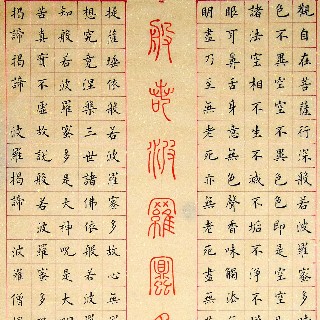 觀自在菩薩行深般若波羅蜜多
色不異空空不異色色即是空空
諸法空相不生不滅不垢不淨不
眼耳鼻舌身意無色聲香味觸法
明盡乃至無老死亦無老死盡無
般若波羅蜜多
提薩埵依般若波羅蜜多故心無
想究竟涅槃三世諸佛依般若波
知般若波羅蜜多是大神咒是大明
苦真實不虛故說般若波羅蜜多
揭諦揭諦 波羅揭諦 波羅僧